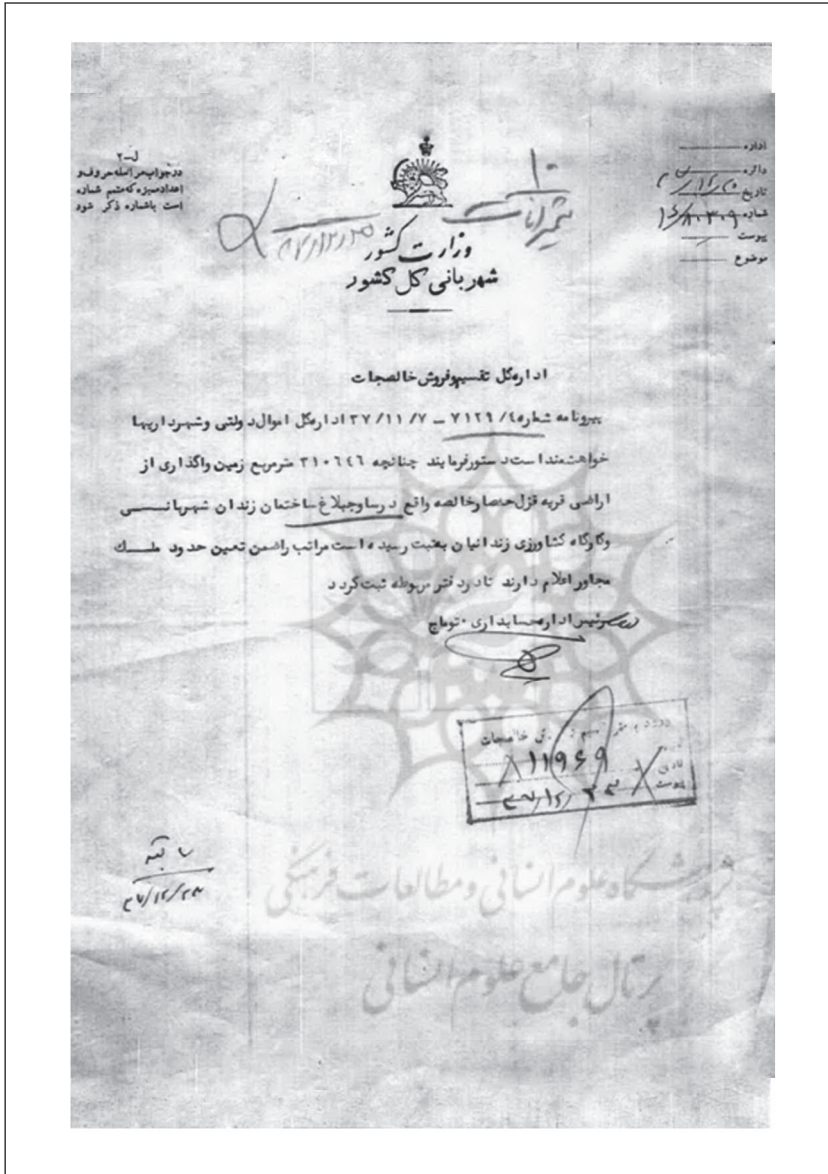 ل-۲
در جواب مراسله حروف و
اعداد ممیزه که متمم شماره
است باشماره ذکر شود
اداره
دائره
تاریخ
شماره
پیوست
موضوع
۱۰
شمیرانات
وزارت کشور
شهربانی کل کشور
اداره کل تقسیم وفروش خالصجات
پیرونامه شماره ۷۱۲۹/۴ – ۳۷/۱۱/۷ اداره کل اموال دولتی وشهرداریها
خواهشمند است دستورفرمایند چنانچه ۳۱۰۶۴۶ مترمربع زمین واگذاری از
اراضی قریه قزل حصارخالصه واقع درساوجبلاغ ساختمان زندان شهربانی
وکارگاه کشاورزی زندانیان بثبت رسیده است مراتب راضمن تعیین حدود ملک
مجاور اعلام دارند تادردفتر مربوطه ثبت گردد
رئیس اداره حسابداری۰ توماج
خالصجات
۱۱۹۶۹
۳۷/۱۲/۲۳
۳۷/۱۲/۲۳
پژوهشگاه علوم انسانی و مطالعات فرهنگی
پرتال جامع علوم انسانی